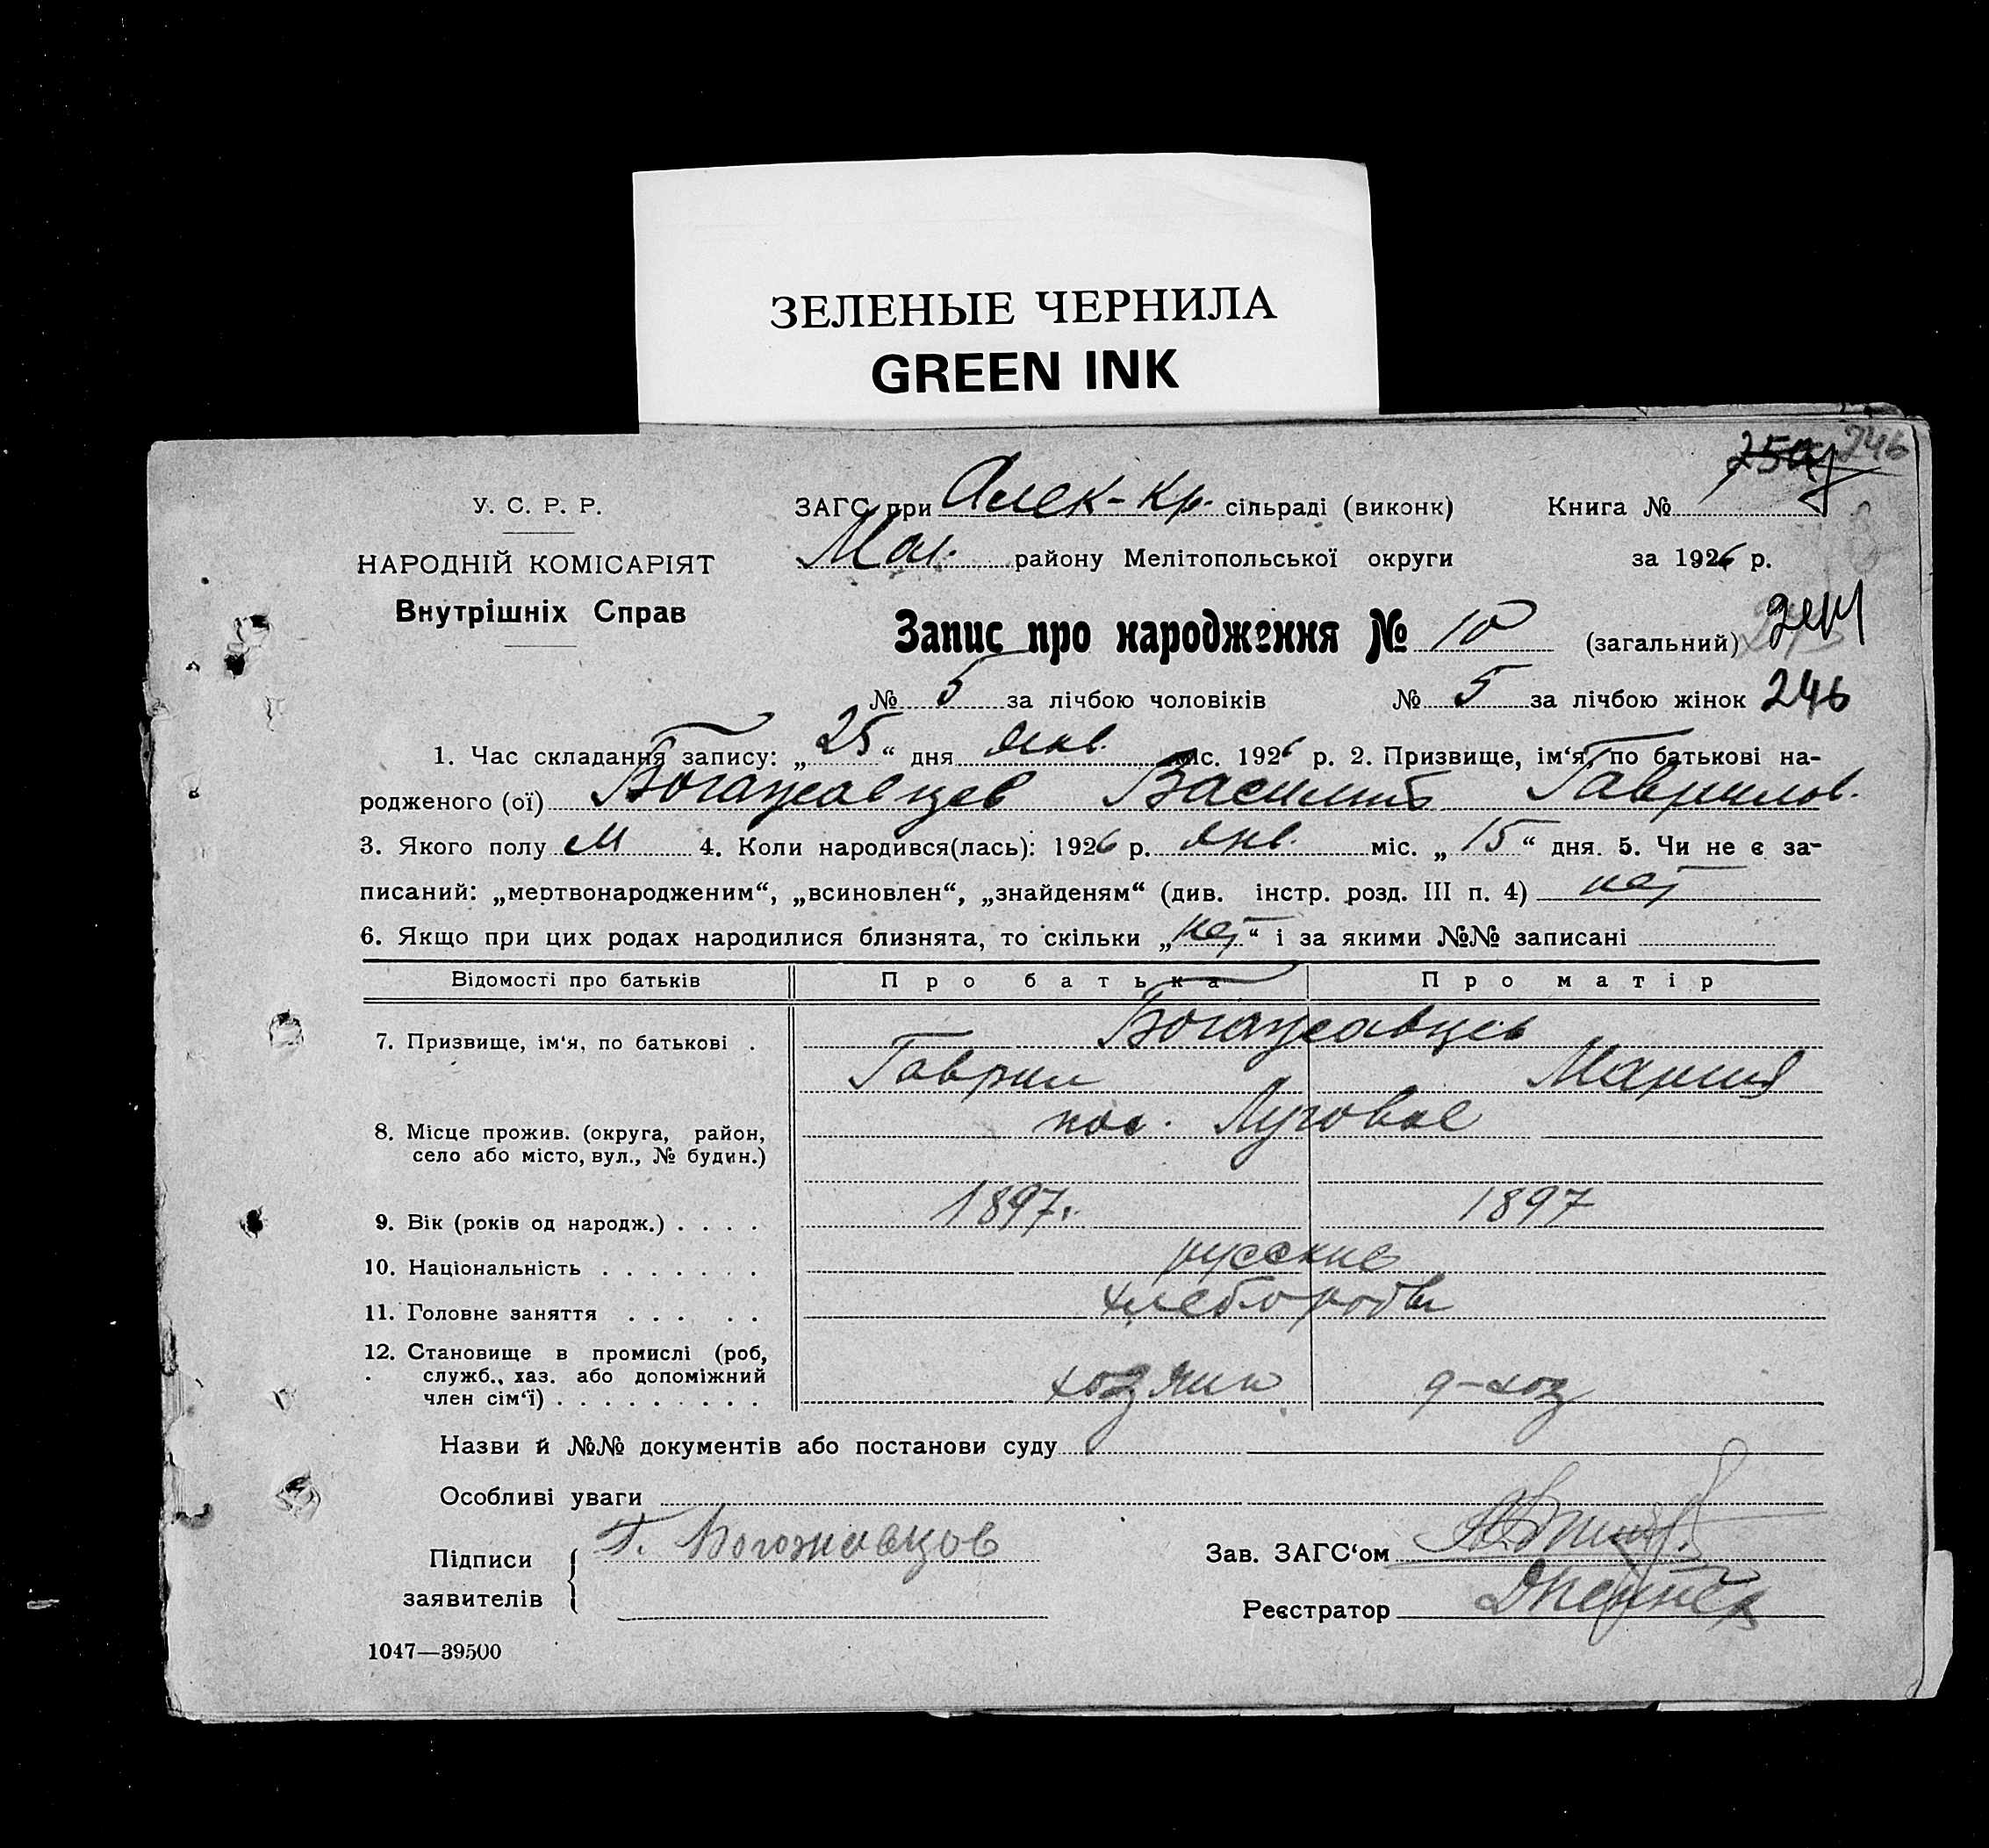 ЗЕЛЕНЫЕ ЧЕРНИЛА
GREEN INK
246
У. С. Р. Р.
НАРОДНІЙ КОМІСАРІЯТ
Внутрішніх Справ
ЗАГС при Алек-Кр. сільраді (виконк) Книга №
Мал. району Мелітопольської округи за 1926 р.
Запис про народження № 10 (загальний)
№ 5 за лічбою чоловіків № 5 за лічбою жінок 246
1. Час складання запису: „25“ дня янв. міс. 1926 р. 2. Призвище, ім‘я, по батькові на-
родженого (ої) Богажавцев Василий Гаврилов.
3. Якого полу М 4. Коли народився(лась): 1926 р. янв. міс. „15“ дня. 5. Чи не є за-
писаний: „мертвонародженим“, „всиновлен“, „знайденям“ (див. інстр. розд. III п. 4) нет
6. Якщо при цих родах народилися близнята, то скільки „нет“ і за якими №№ записані
Відомості про батьків Про батька Про матір
7. Призвище, ім‘я, по батькові . Богажавцев
Гаврил Мария
8. Місце прожив. (округа, район, пос. Луговое
село або місто, вул., № будин.)
9. Вік (років од народж.) . . . . 1897. 1897
10. Національність . . . . . . . русские
11. Головне заняття . . . . . хлеборобы
12. Становище в промислі (роб,
служб., хаз. або допоміжний хозяин д-хоз
член сім‘ї) . . . . . . . . .
Назви й №№ документів або постанови суду
Особливі уваги
Підписи Г. Богожавцов Зав. ЗАГС‘ом
заявителів Реєстратор
1047—39500